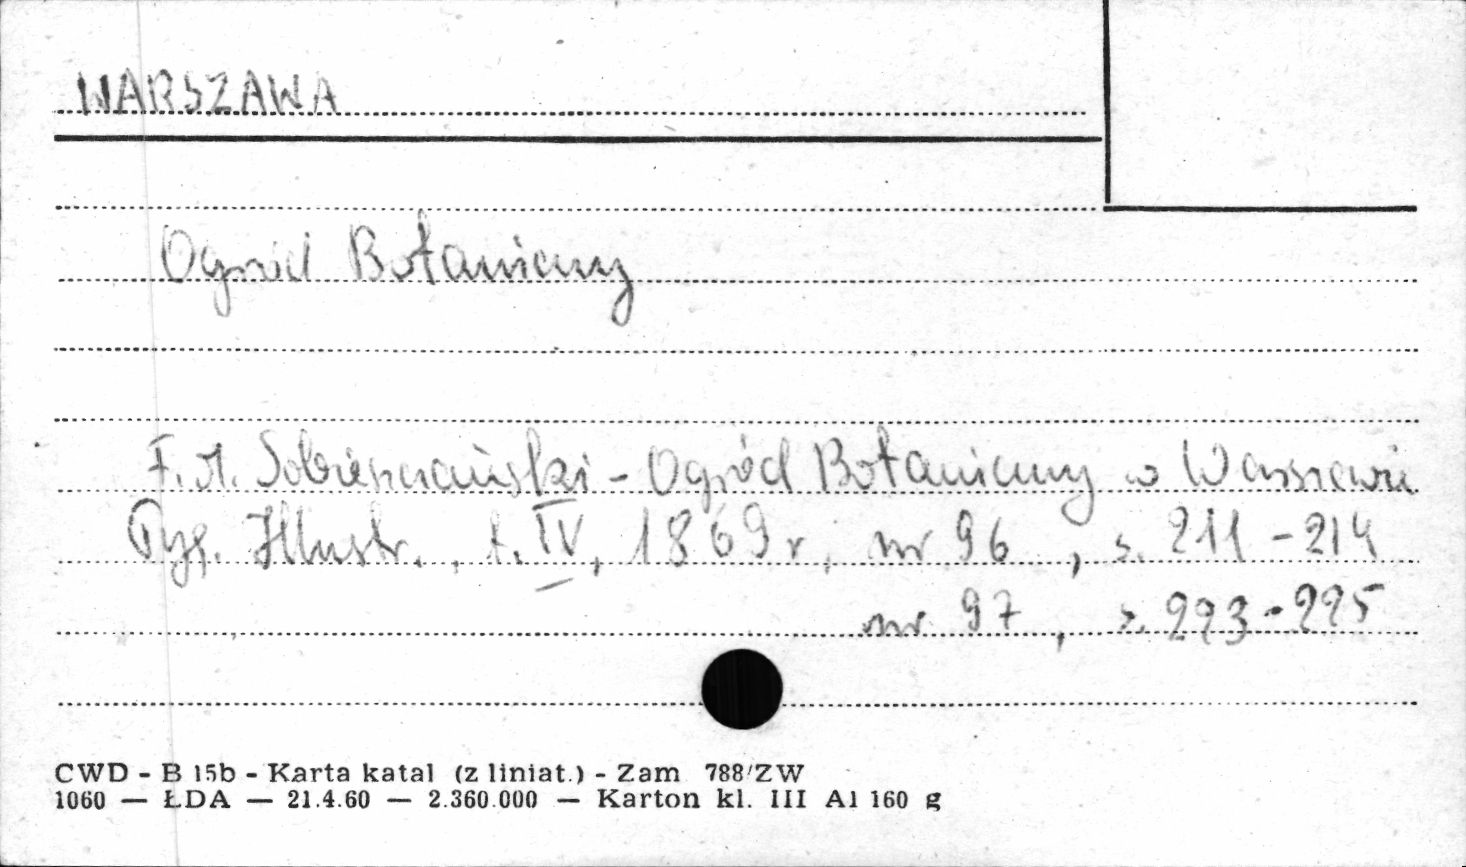 WARSZAWA
Ogród Botaniczny
F. M. Sobieszczański - Ogród Botaniczny w Warszawie
Tyg. Illustr., t. IV, 1869 r, nr 96, s. 211-214
nr 97, s. 223-225
CWD - B 15b - Karta katal (z liniat.) - Zam 788/ZW
1060 — ŁDA — 21.4.60 — 2.360.000 — Karton kl. III A1 160 g